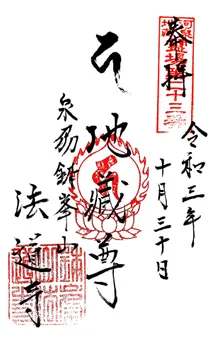 奉拝
令和三年
十月三十日
地蔵尊
泉州鉢峯山
法道寺